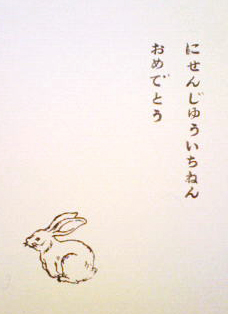 にせんじゅういちねん
おめでとう